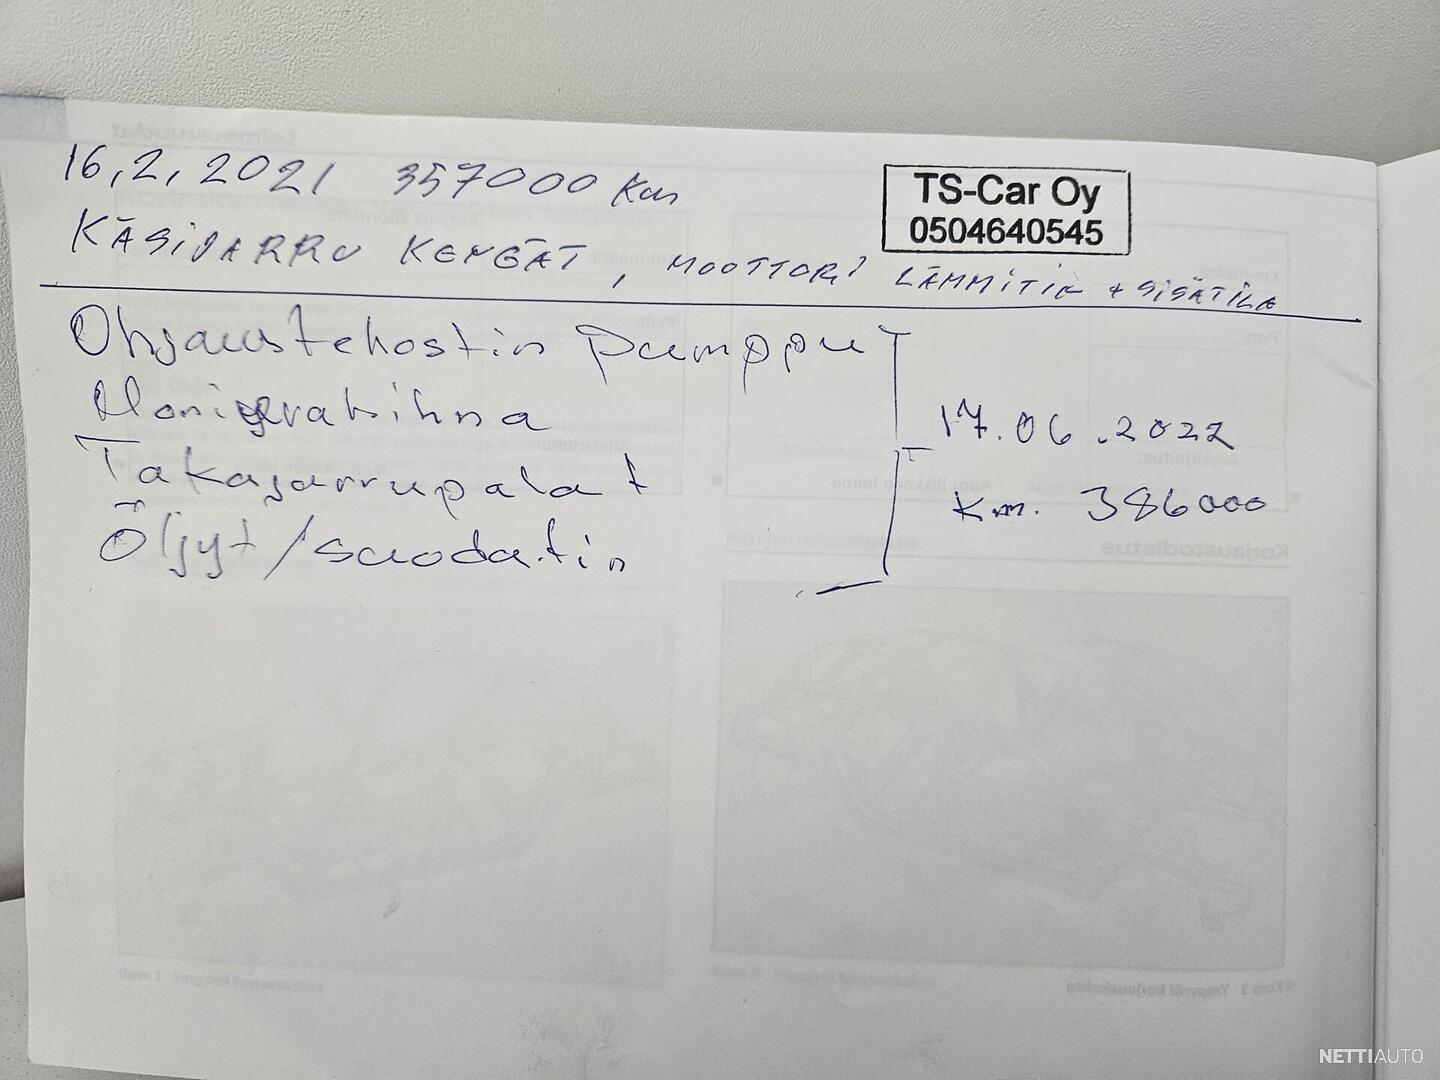 16,2,2021 357000 Km
TS-Car Oy
0504640545
KÄSIJARRU KENGÄT, MOOTTORI LÄMMITIN + SISÄTILA
Ohjaustehostin pumppu
Moniurahihna
Takajarrupalat
Öljyt/suodatin
17.06.2022
Km. 386000
Korjaustodistus
NETTIAUTO